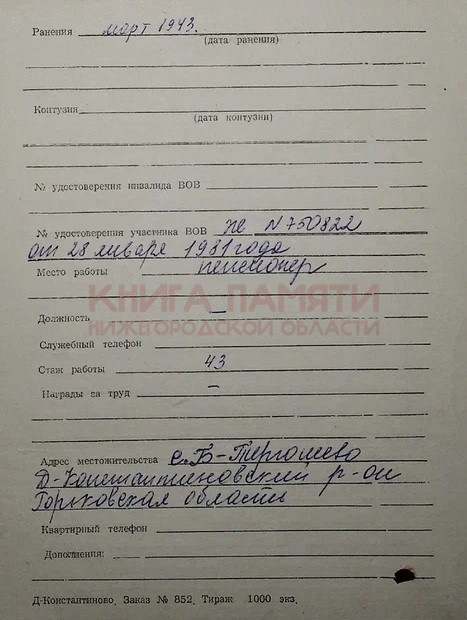 Ранения март 1943.
(дата ранения)
Контузия
(дата контузии)
№ удостоверения инвалида ВОВ
№ удостоверения участника ВОВ не N 750822
от 28 января 1981 года
Место работы пенсионер
КНИГА ПАМЯТИ
НИЖЕГОРОДСКОЙ ОБЛАСТИ
Должность —
Служебный телефон
Стаж работы 43
Награды за труд —
Адрес местожительства с. Б-Тергомево
Д-Константиновский р-он
Горьковская области
Квартирный телефон
Дополнения:
Д-Константиново, Заказ № 852, Тираж 1000 экз.